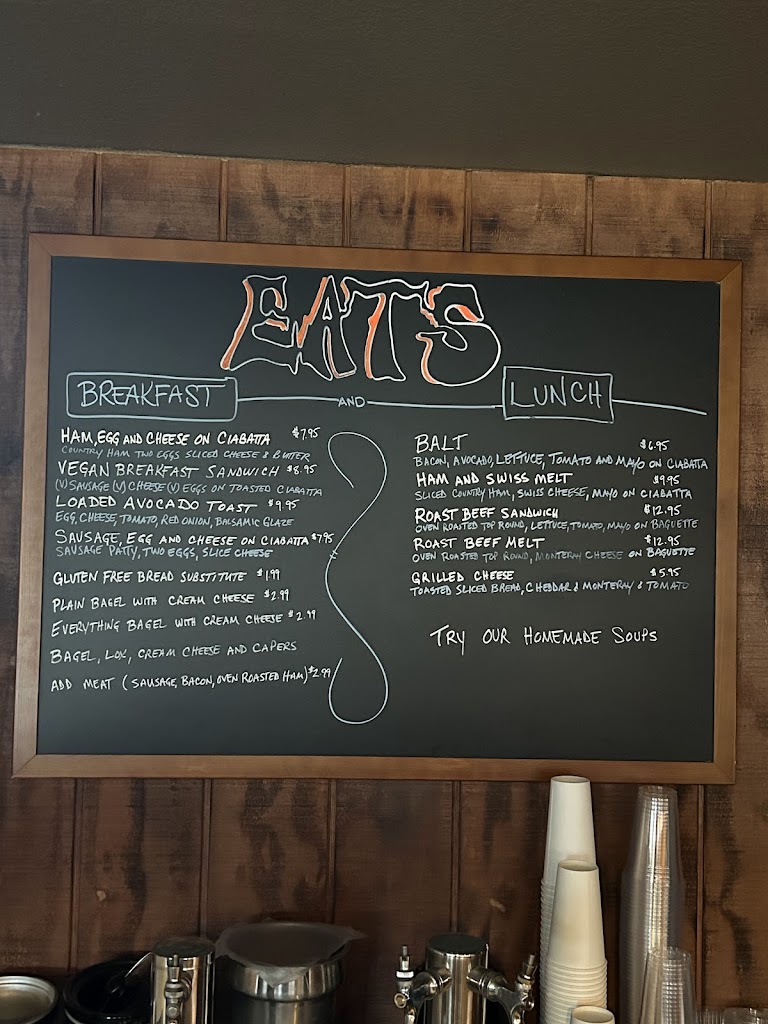 EATS
BREAKFAST
AND
LUNCH
HAM, EGG AND CHEESE ON CIABATTA $7.95
COUNTRY HAM TWO EGGS SLICED CHEESE & BUTTER
VEGAN BREAKFAST SANDWICH $8.95
(V) SAUSAGE (V) CHEESE (V) EGGS ON TOASTED CIABATTA
LOADED AVOCADO TOAST $9.95
EGG, CHEESE, TOMATO, RED ONION, BALSAMIC GLAZE
SAUSAGE, EGG AND CHEESE ON CIABATTA $7.95
SAUSAGE PATTY, TWO EGGS, SLICE CHEESE
GLUTEN FREE BREAD SUBSTITUTE $1.99
PLAIN BAGEL WITH CREAM CHEESE $2.99
EVERYTHING BAGEL WITH CREAM CHEESE $2.99
BAGEL, LOX, CREAM CHEESE AND CAPERS
ADD MEAT (SAUSAGE, BACON, OVEN ROASTED HAM) $2.99
BALT $6.95
BACON, AVOCADO, LETTUCE, TOMATO AND MAYO ON CIABATTA
HAM AND SWISS MELT $9.95
SLICED COUNTRY HAM, SWISS CHEESE, MAYO ON CIABATTA
ROAST BEEF SANDWICH $12.95
OVEN ROASTED TOP ROUND, LETTUCE, TOMATO, MAYO ON BAGUETTE
ROAST BEEF MELT $12.95
OVEN ROASTED TOP ROUND, MONTERAY CHEESE ON BAGUETTE
GRILLED CHEESE $5.95
TOASTED SLICED BREAD, CHEDDAR & MONTERAY & TOMATO
TRY OUR HOMEMADE SOUPS